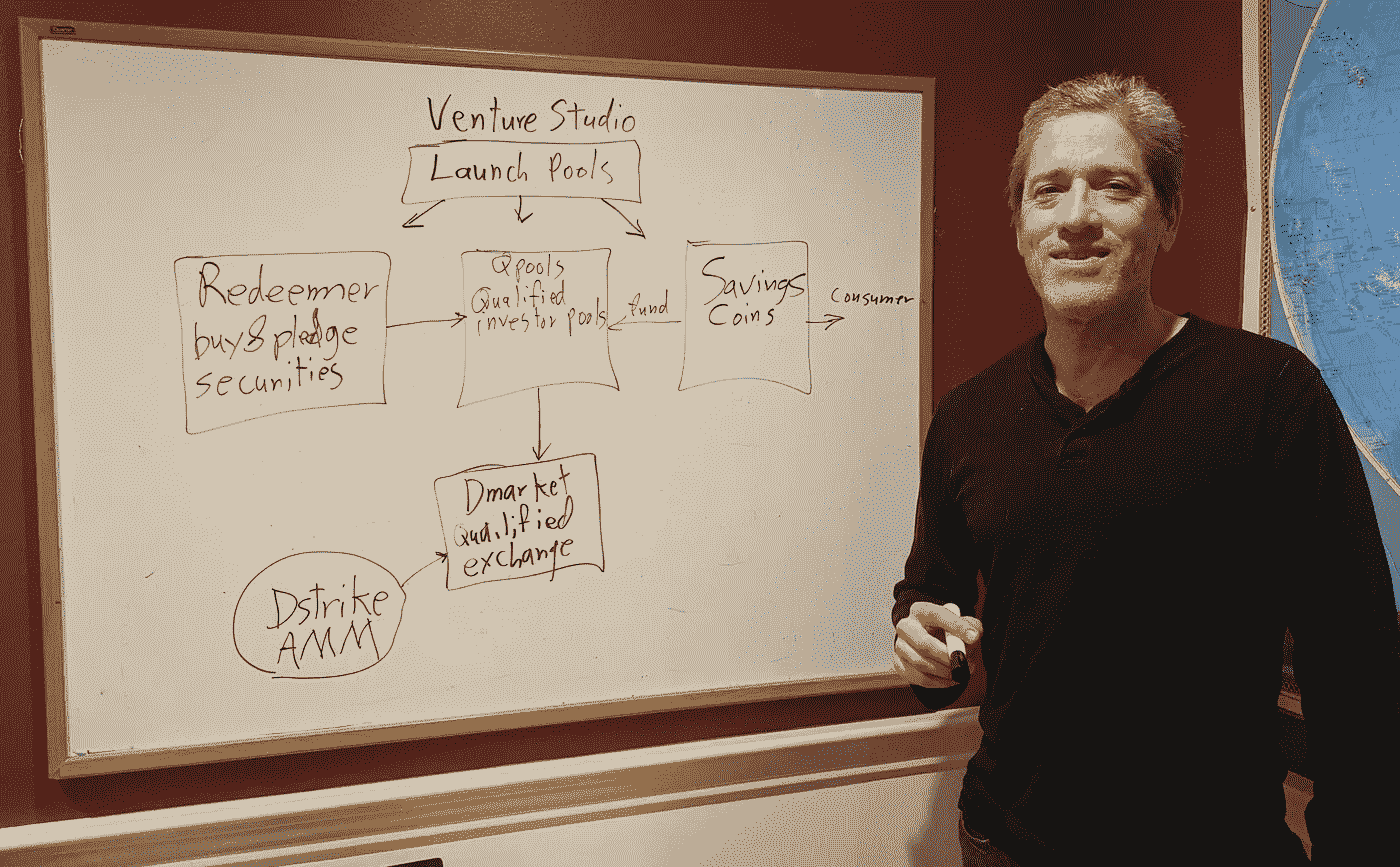 Venture Studio
Launch Pools
Redeemer
buy & pledge
securities
Qpools
Qualified
investor pools
fund
Savings
Coins
Consumer
Dmarket
Qualified
exchange
Dstrike
AMM